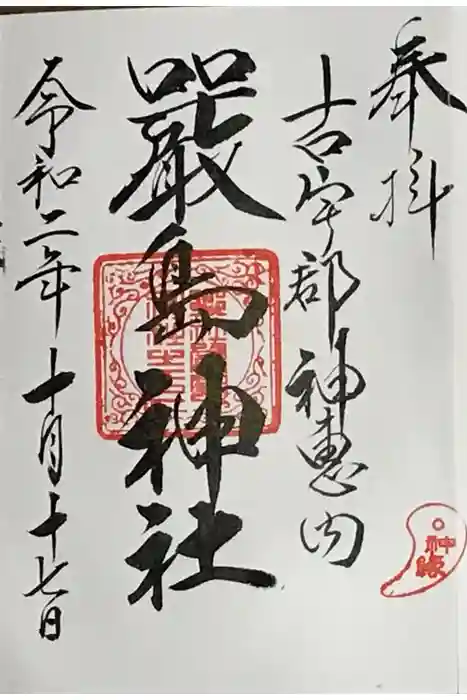 奉拝
古宇郡神恵内
嚴島神社
令和二年十月十七日
神縁